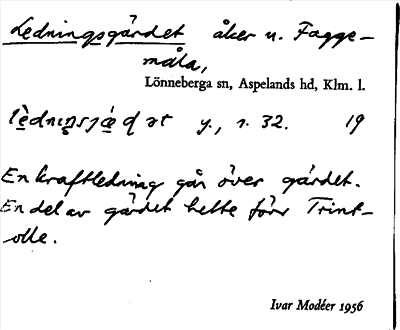 Ledningsgärdet åker u. Fagge-
måla,
Lönneberga sn, Aspelands hd, Klm. l.
y., s. 32. 19
En kraftledning går över gärdet.
En del av gärdet hette förr Trint-
olle.
Ivar Modéer 1956